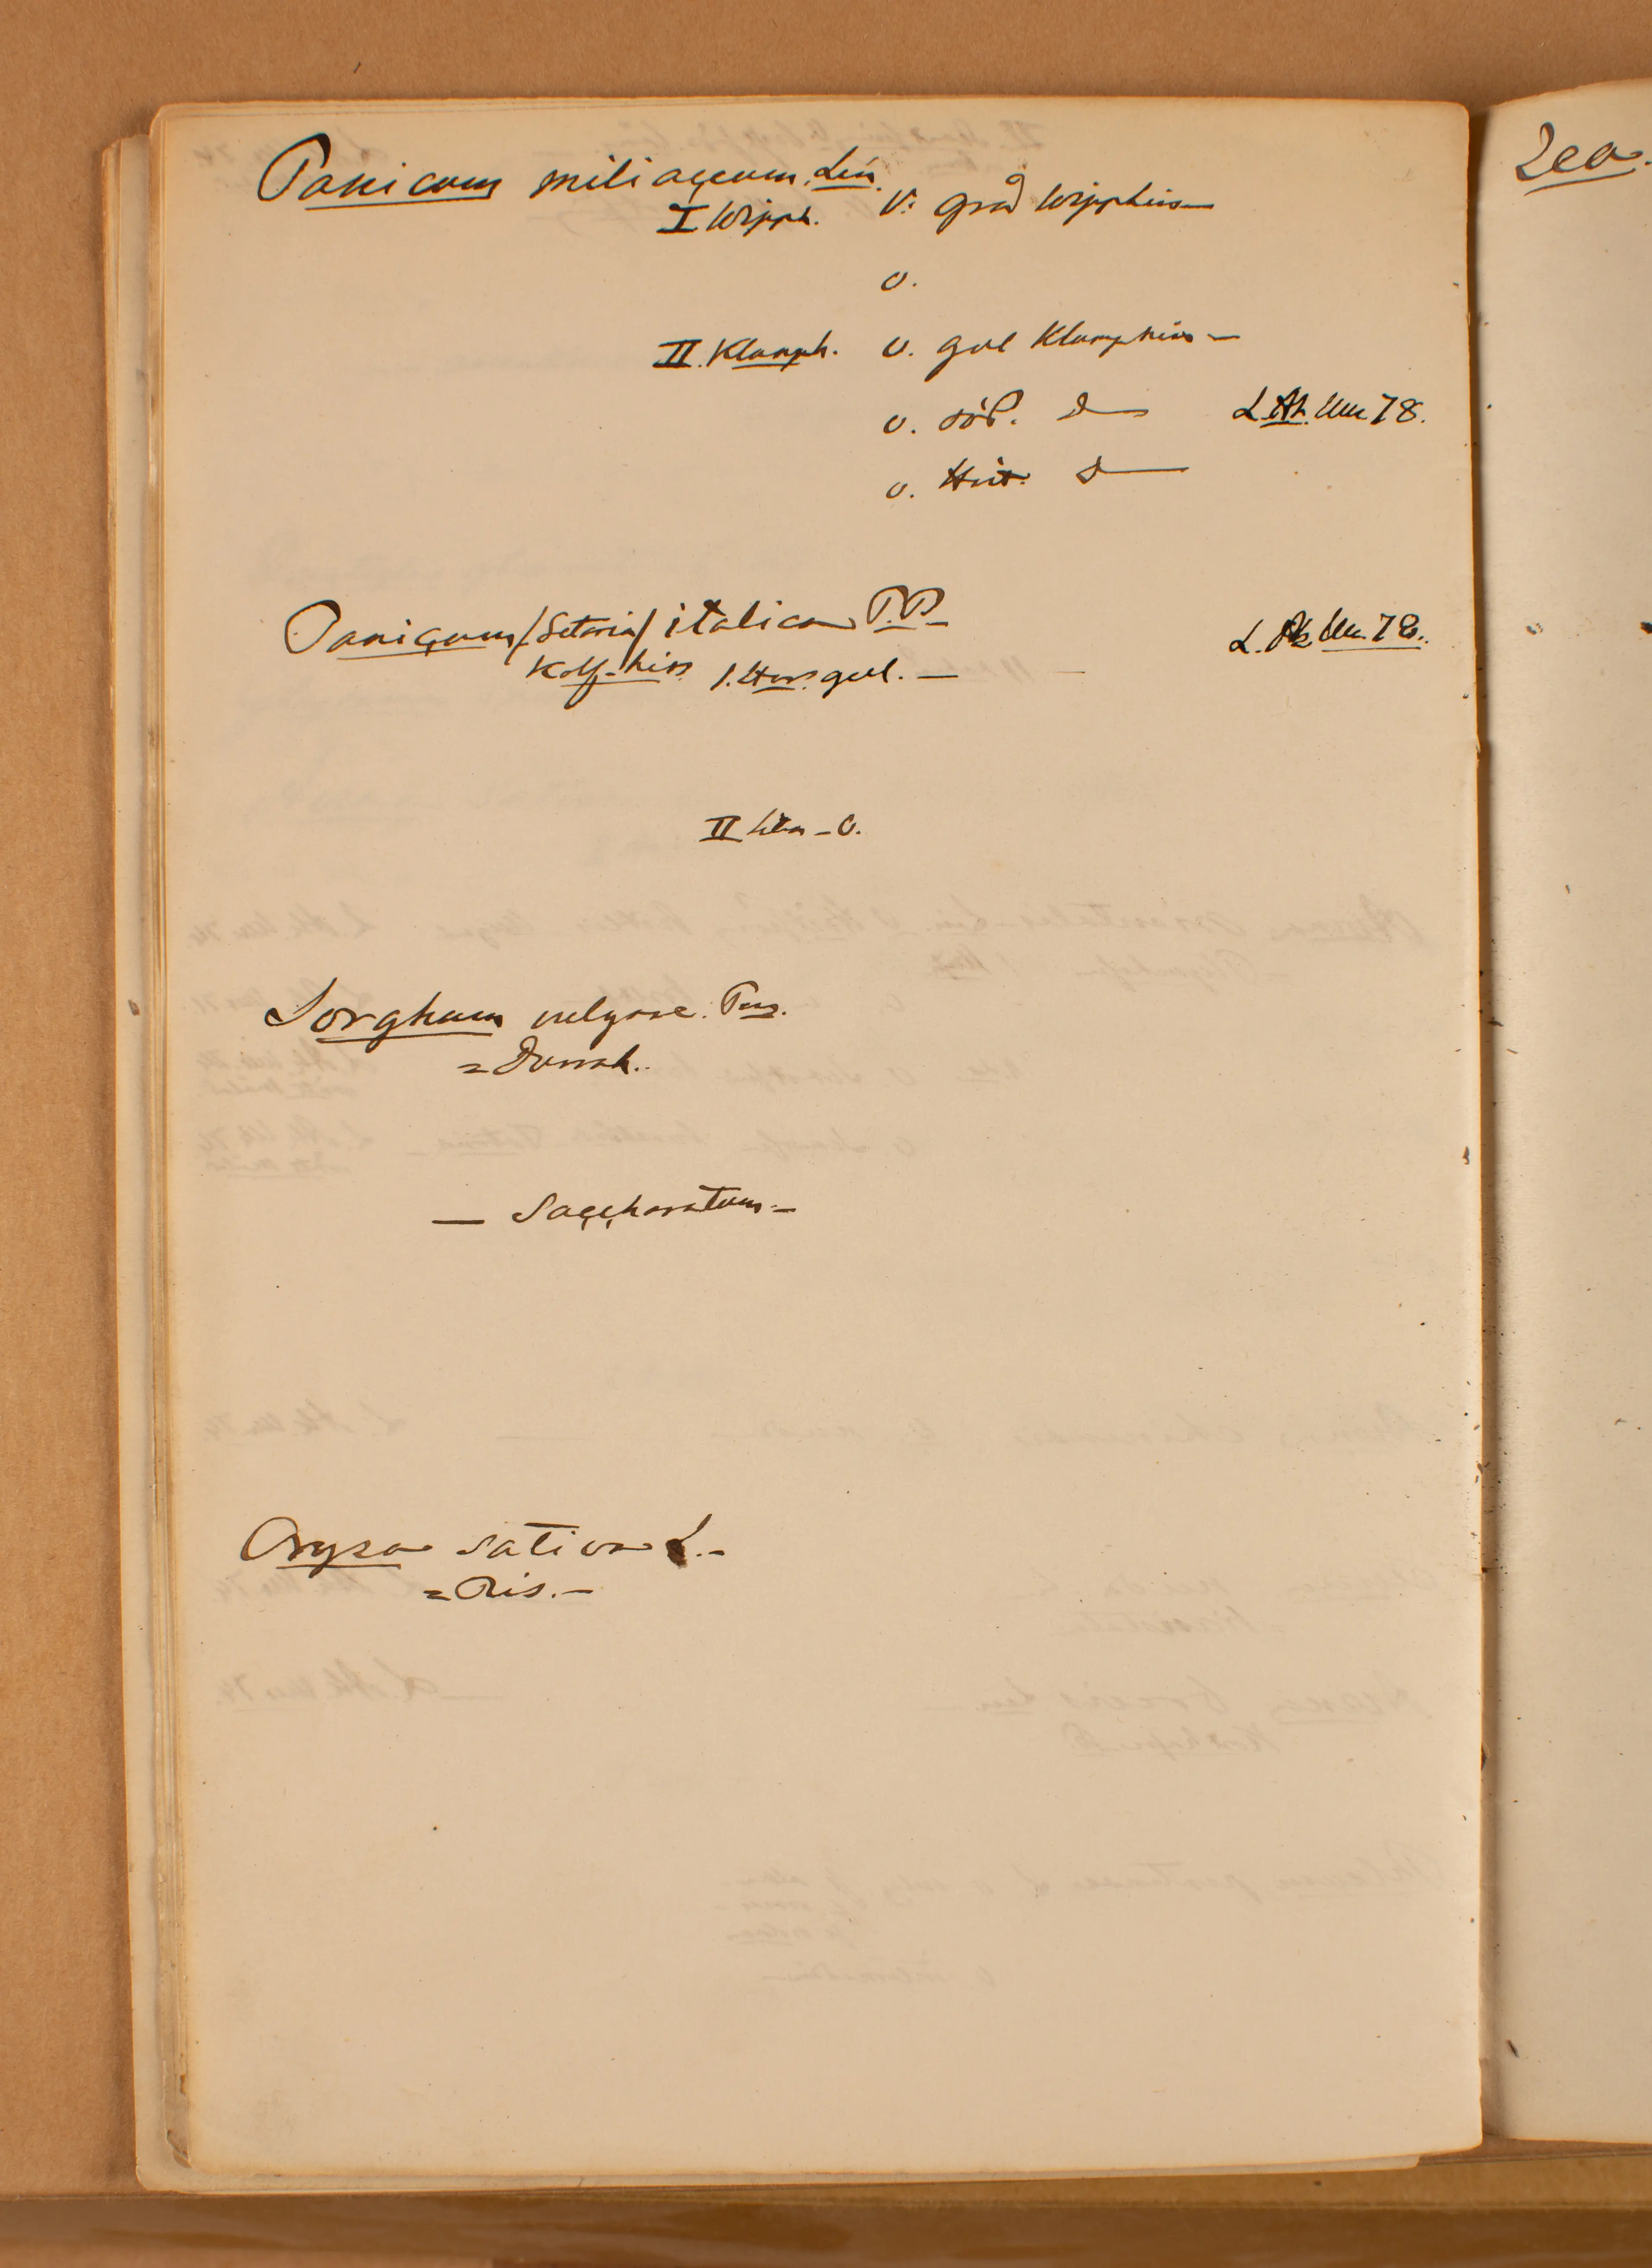 Panicum miliaceum. Lin.
I Wipph. V: grå Wipphirs—
v.
II. Klumph. v. gul Klumphirs—
v. röd. d— L. Ak. Um 78.
v. Hvit. d—
Panicum /Setaria/ italica P.B— L. Ak Um. 78.
Kolf-hirs 1. Hvs. gul. —
II — v.
Sorghum vulgare. Pers.
= Durrah..
— Saccharatum —
Oryza sativa L.-
= Ris.—
Zea.